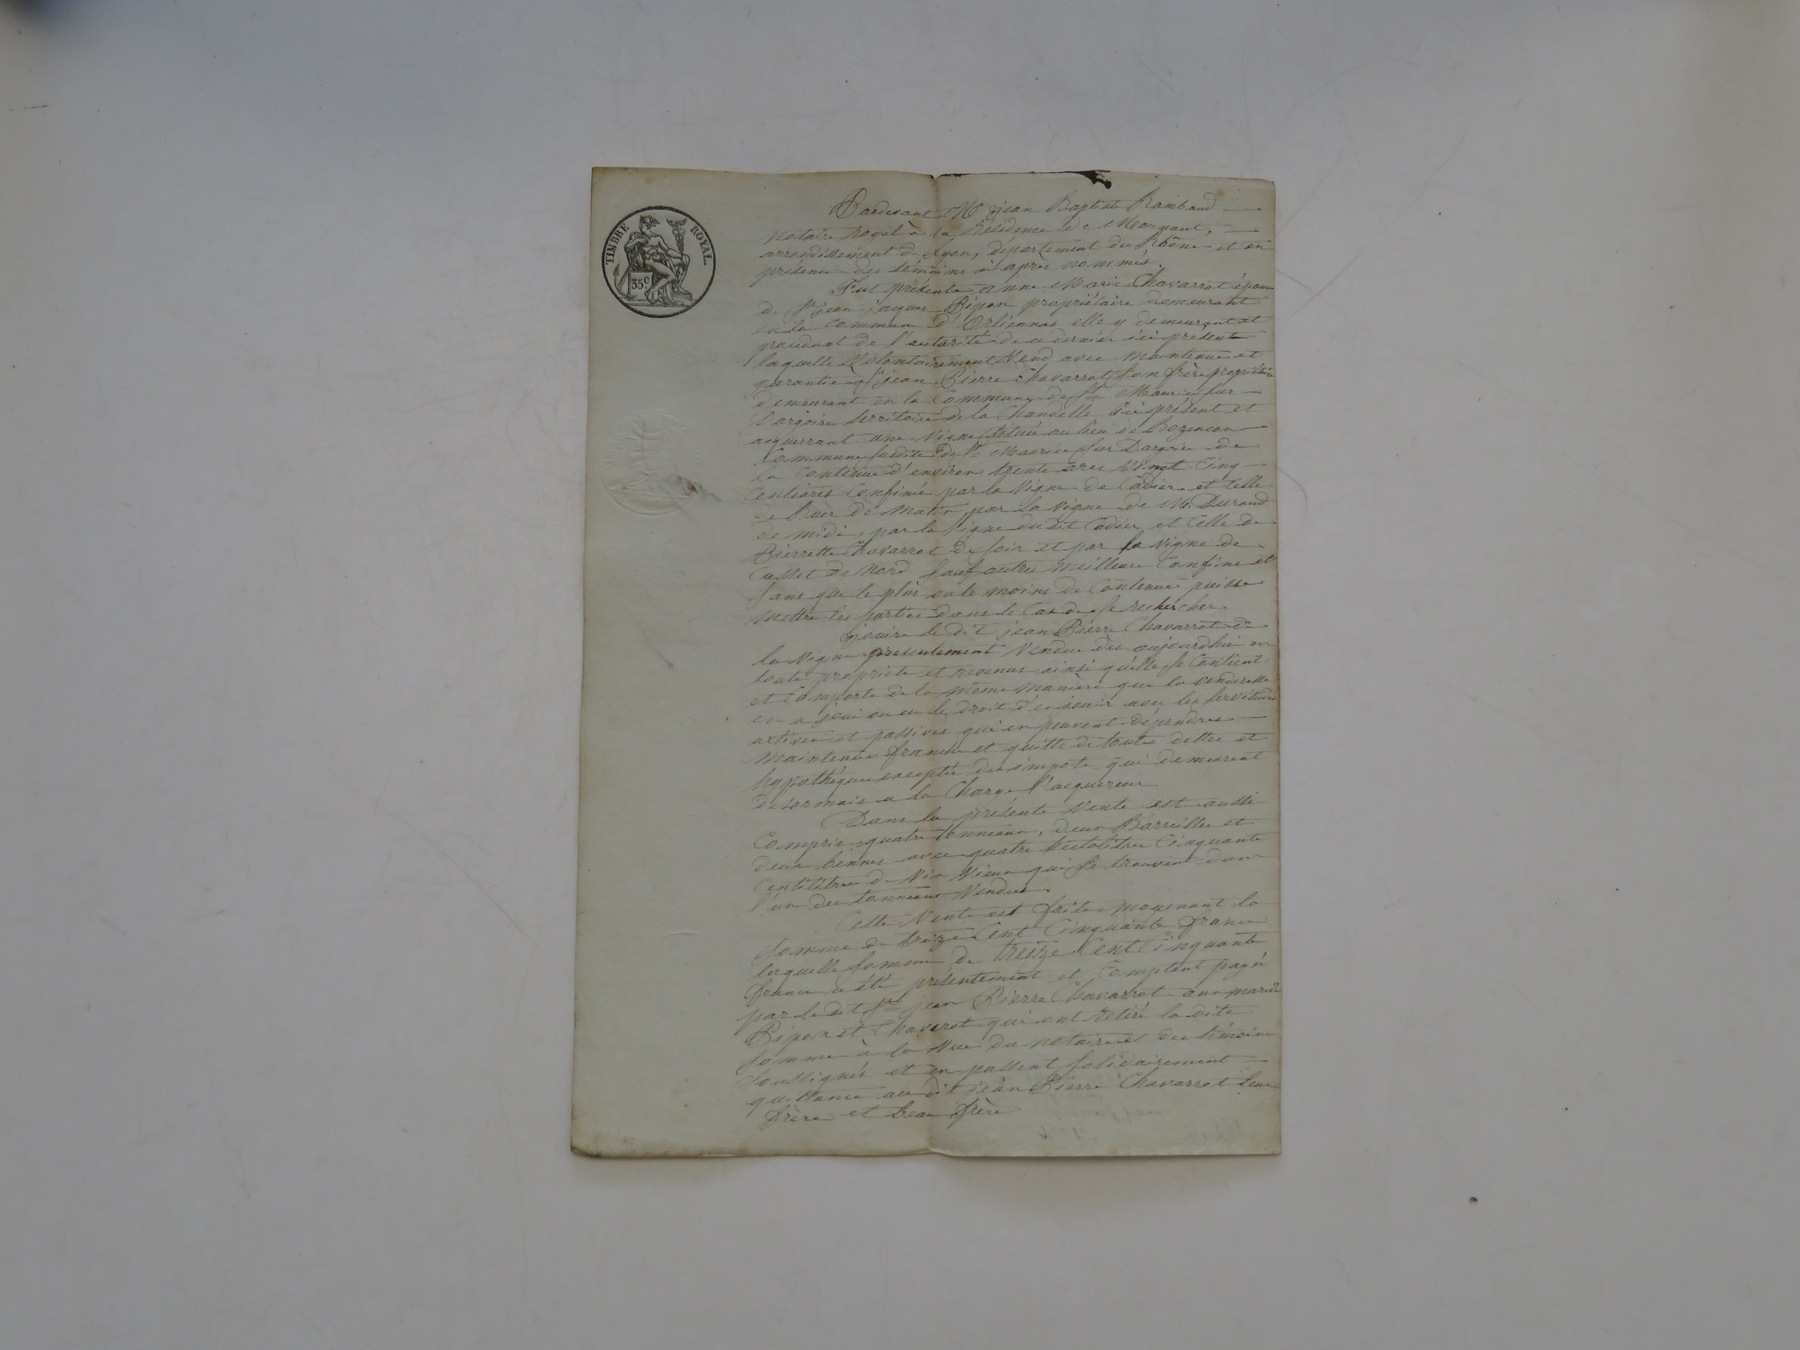 TIMBRE ROYAL
35c
Pardevant Me jean Baptiste Rambaud
notaire royal à la Résidence de Mornant,
arrondissement de Lyon, département du Rhône et en
présence des témoins ci après nommés.
Fut présente anne Marie Chavarrot épouse
de Sr jean jacques Pipon propriétaire demeurant
en la Commune d'Orliennas elle y demeurant et
procédant de l'autorité de ce dernier ici présent
laquelle Volontairement Vend avec maintenue et
garantie à Sr jean Pierre Chavarrot Son frère propriétaire
demeurant en la Commune de St Maurice sur
Dargoire territoire de la Chanelle ici présent et
acquerrant une Vigne Située au lieu de Bozencon
Commune Susdite de St Maurice sur Dargoire de
la Contenue d'environ trente ares Vingt Cinq
Centiares Confinée par la Vigne de Cadier et telle
de de matin, par la Vigne de M. Durand
de midi, par la Vigne dudit Cadier et Celle de
Pierrette Chavarrot de Soir et par la Vigne de
Cusset de Nord Sauf autres meilleurs Confins et
Sans que le plus ou le moins de Contenue puisse
mettre les parties dans le Cas de se rechercher.
Jouira le dit jean Pierre Chavarrot de
la Vigne présentement Vendue dès aujourdhui en
toute propriété et revenus ainsi qu'elle se Contient
et Comporte de la même manière que la venderesse
en a joui ou eu le droit d'en jouir avec les servitudes
actives et passives qui en peuvent dépendre
maintenue franche et quitte de toutes dettes et
hypothèques exceptée des impots qui demeurent
desormais a la Charge l'acquereur
Dans la présente Vente est aussi
Compris quatre tonneaux, deux Barreilles et
deux bennes avec quatre hectolitres Cinquante
Centilitres de Vin Vieux qui se trouvent dans
l'un des tonneaux Vendus.
Cette Vente est faite moyenant la
Somme de treize Cent Cinquante francs
laquelle Somme de treize Cent Cinquante
francs a été présentement et Comptant payé
par le dit Sr jean Pierre Chavarrot aux mariés
Pipon et Chavarot qui ont retiré la dite
Somme à la Vue du notaire et des témoins
Soussignés et en passent Solidairement
quittance au dit jean Pierre Chavarrot leur
frère et beau frère